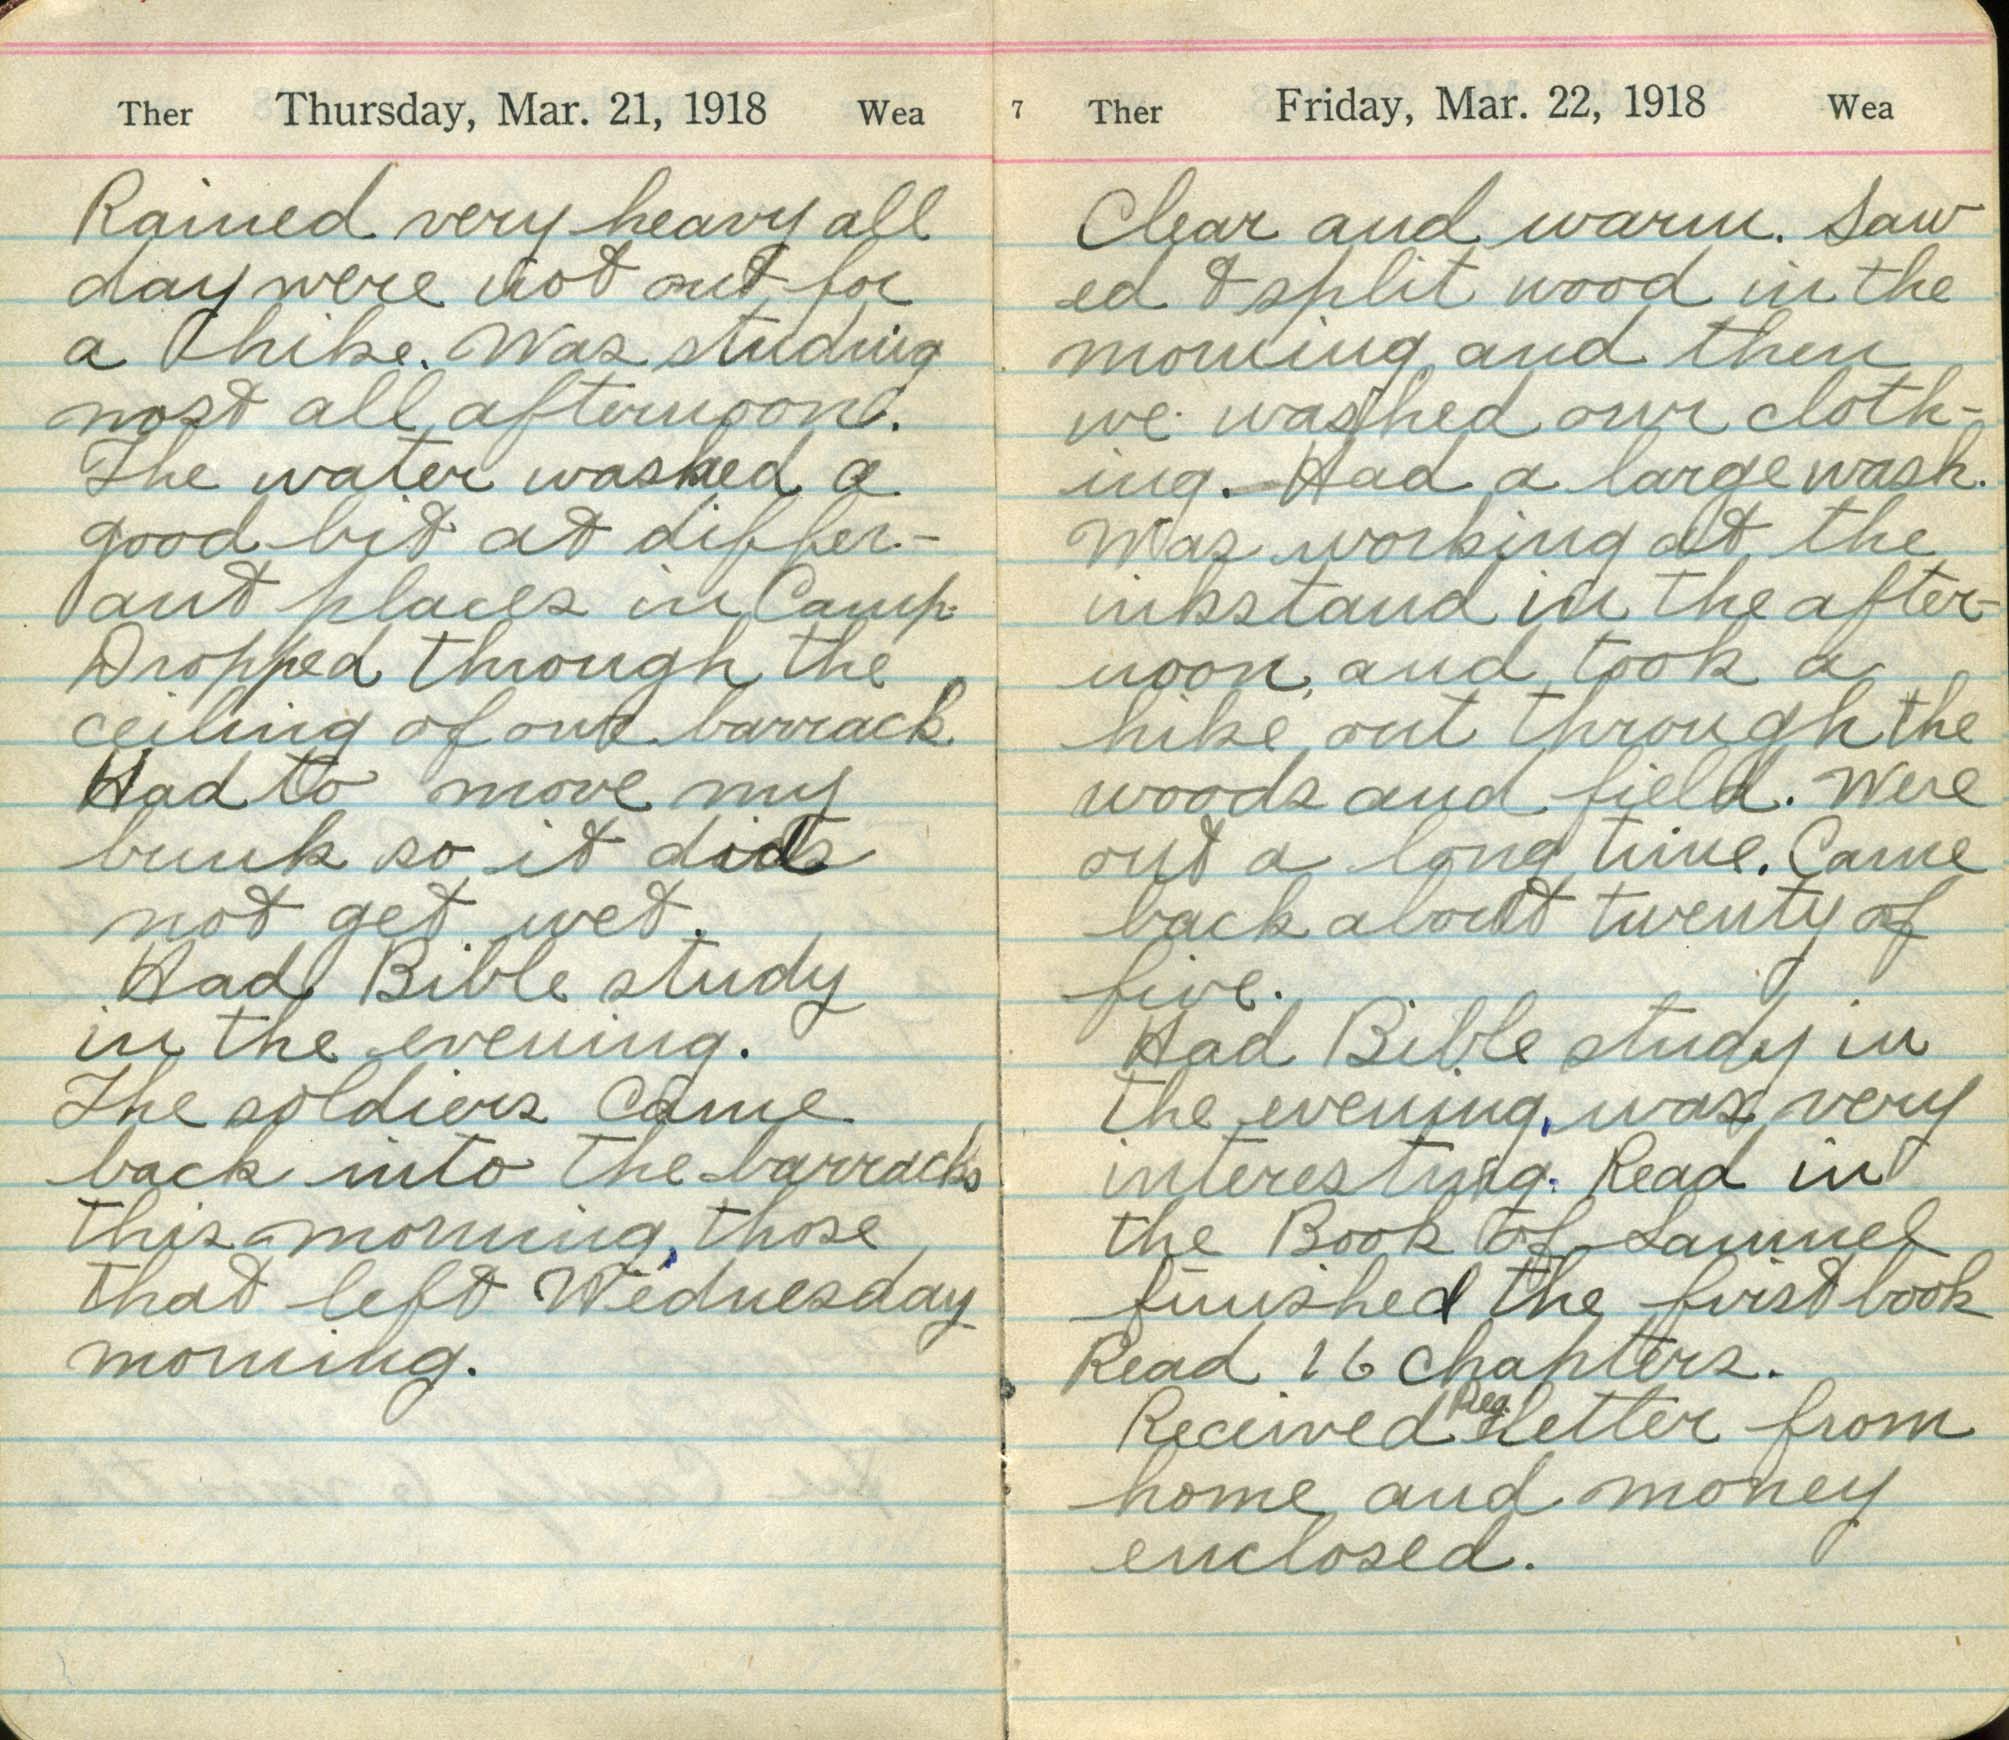 Ther Thursday, Mar. 21, 1918 Wea
Rained very heavy all
day were not out for
a hike. Was studing
most all afternoon.
The water washed a
good bit at differ-
ant places in Camp.
Dropped through the
ceiling of our barrack.
Had to move my
bunk so it did
not get wet.
Had Bible study
in the evening.
The soldiers came
back into the barracks
this morning, those
that left Wednesday
morning.
7 Ther Friday, Mar. 22, 1918 Wea
Clear and warm. Saw
ed & split wood in the
morning and then
we washed our cloth-
ing. Had a large wash.
Was working at the
inkstand in the after-
noon, and took a
hike out through the
woods and field. Were
out a long time. Came
back about twenty of
five.
Had Bible study in
the evening, was very
interesting. Read in
the Book of Samuel
finished the first book
Read 16 chapters.
Received Reg. letter from
home and money
enclosed.